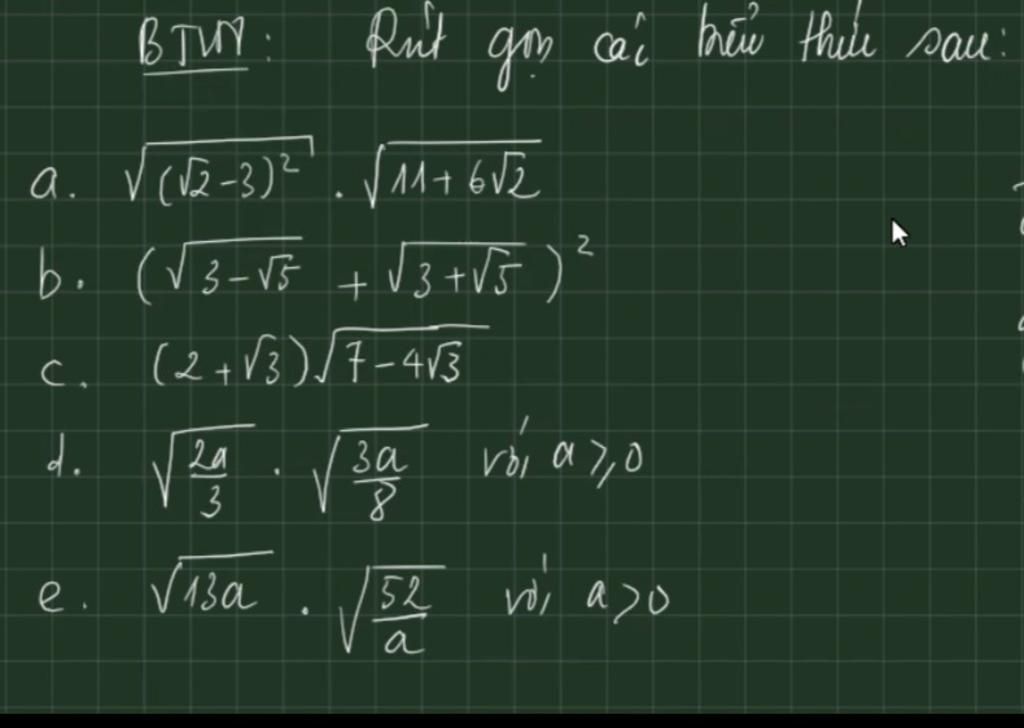 BTVN: Rút gọn các biểu thức sau:
a. √((√2-3)²) . √(11+6√2)
b. (√(3-√5) + √(3+√5))²
c. (2+√3)√(7-4√3)
d. √(2a/3) . √(3a/8) với a ≥ 0
e. √(13a) . √(52/a) với a > 0